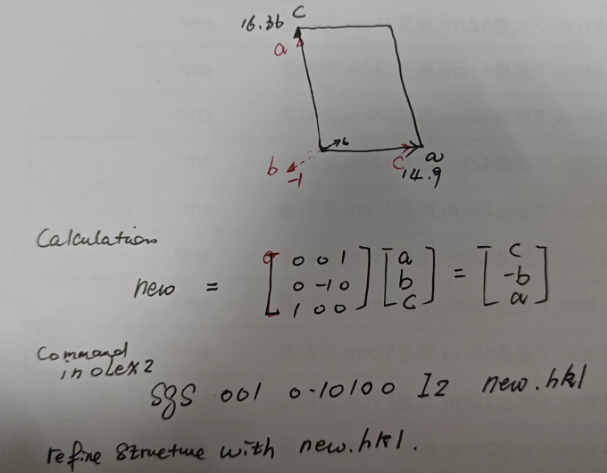 16.36 c
a
b
b
-1
c a
14.9
Calculation
new = [ 0 0 1 ] [ a ] = [ c ]
0 -1 0 b -b
1 0 0 c a
Command
in olex2
sgs 001 0-10100 I2 new.hkl
refine structure with new.hkl.